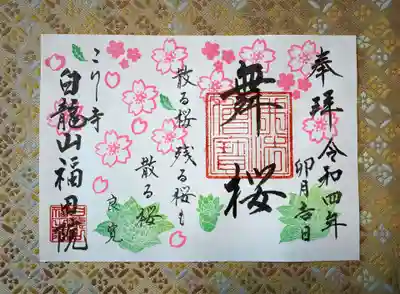 奉拝
令和四年
卯月吉日
舞桜
散る桜残る桜も
散る桜
良寛
こり寺
白龍山福田院